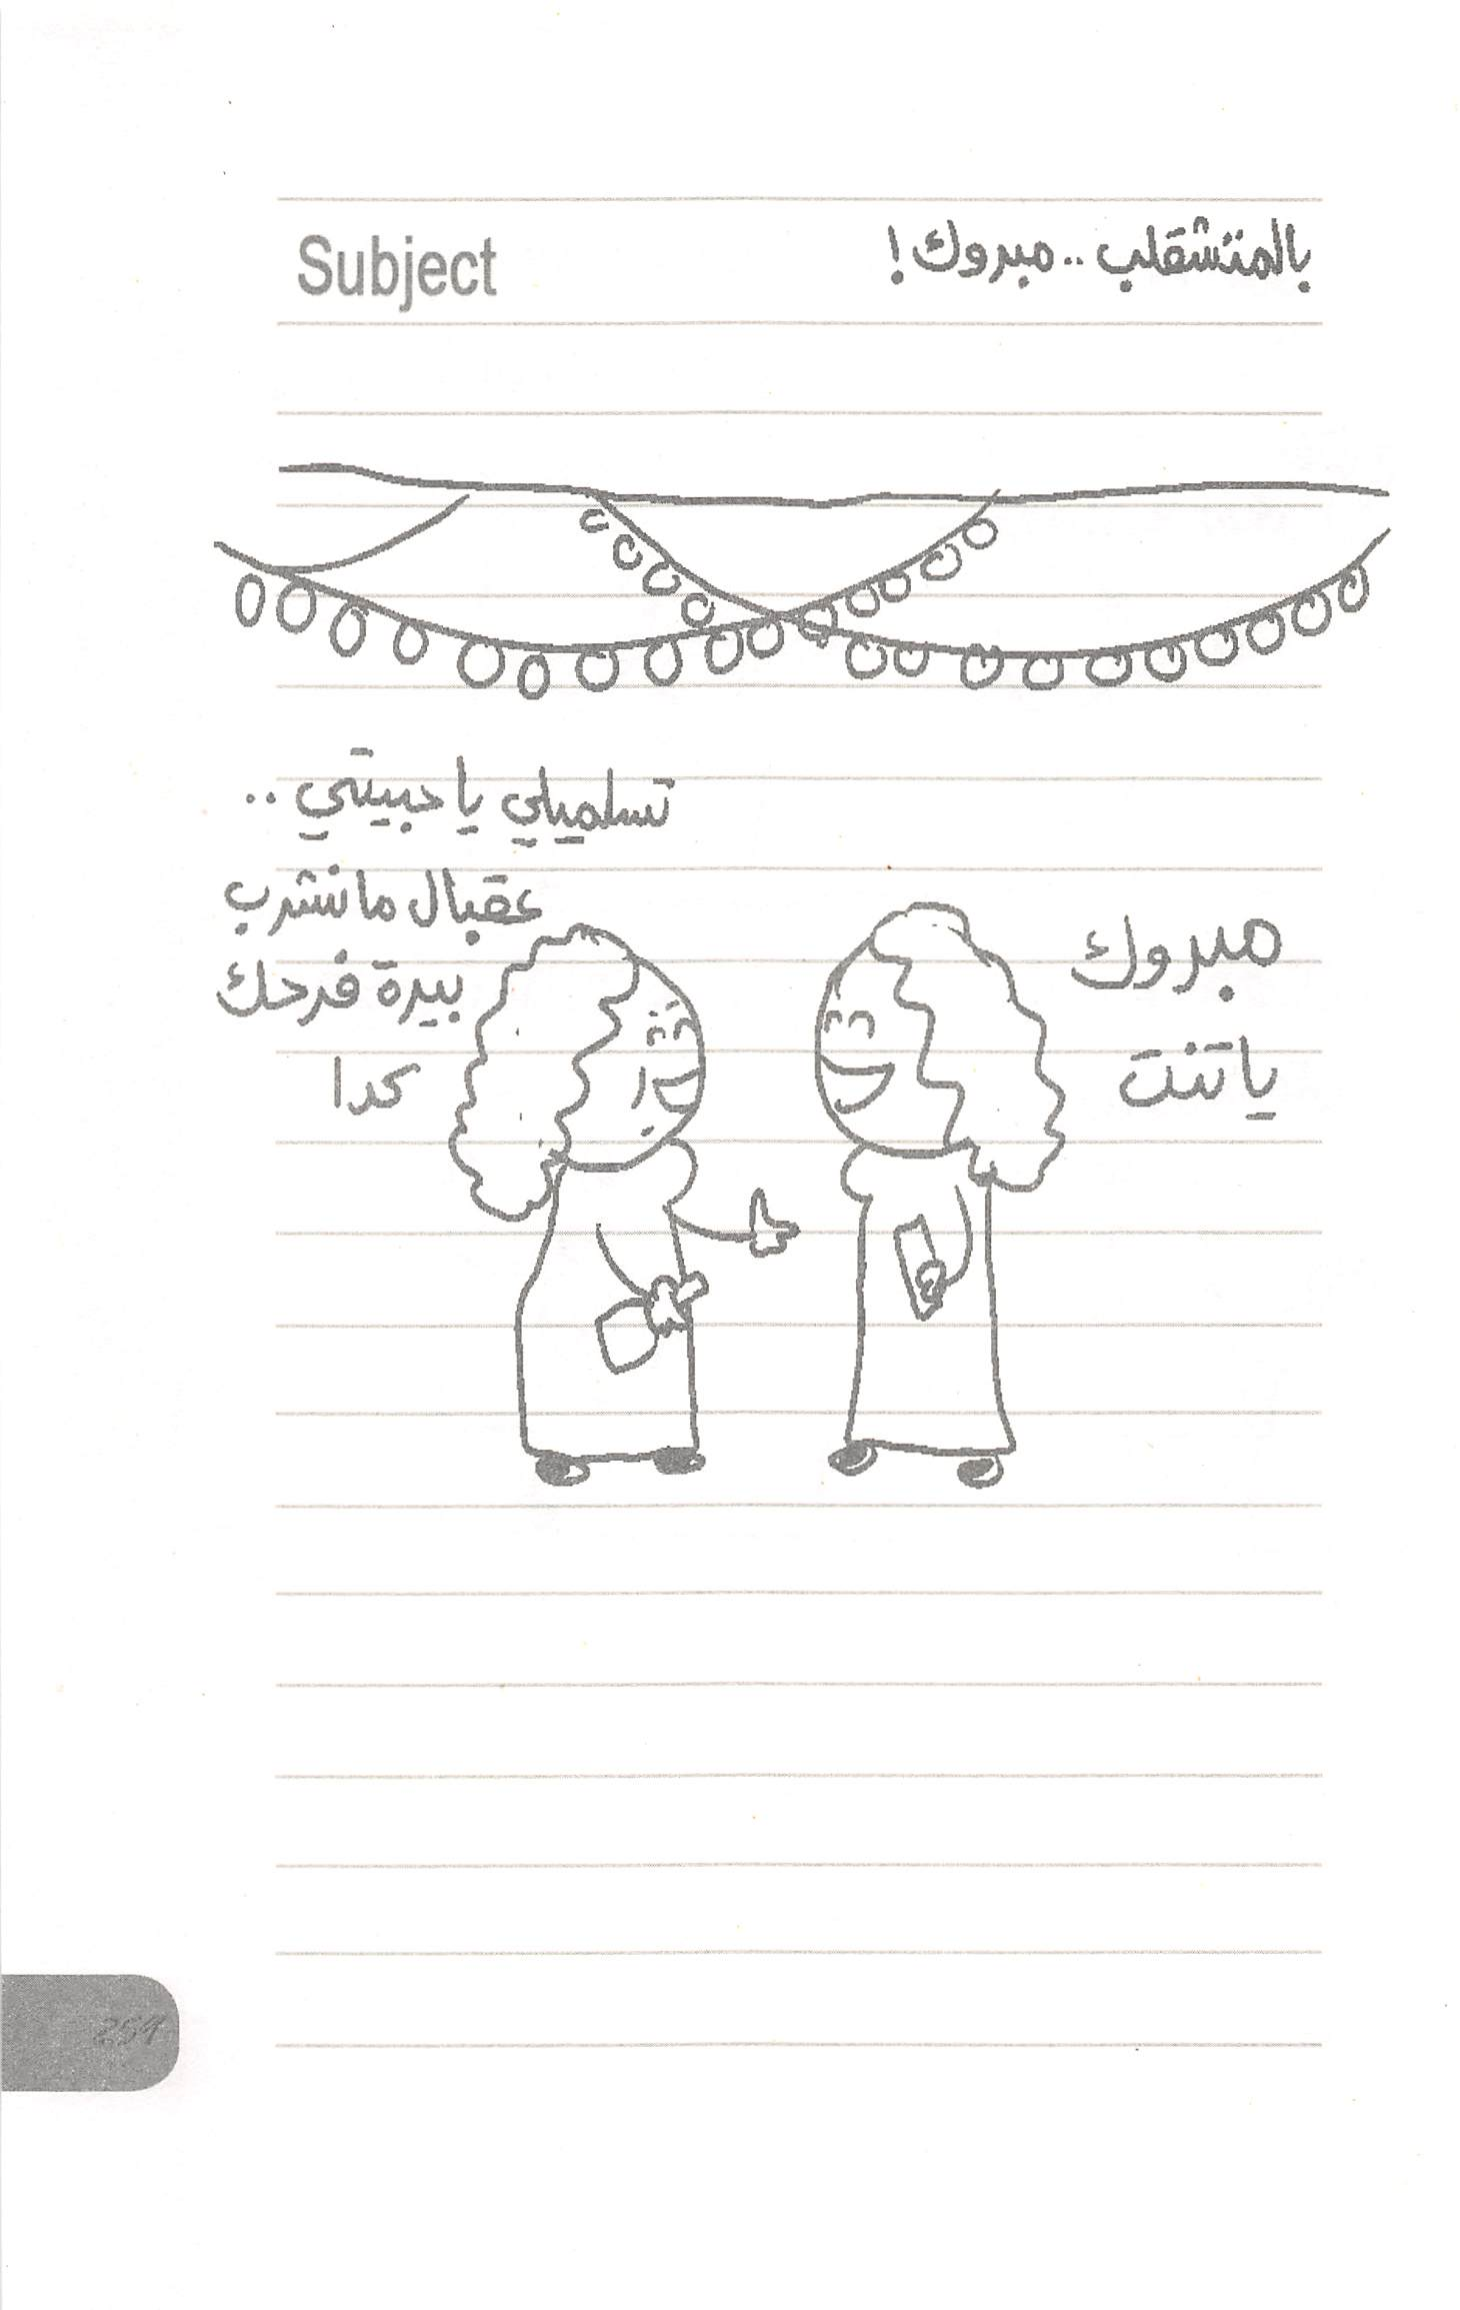 Subject
بالمتشقلب .. مبروك !
تسلميلي يا حبيبتي ..
عقبال ما نشرب
بيرة فرحك
كدا
مبروك
يا تنت
254